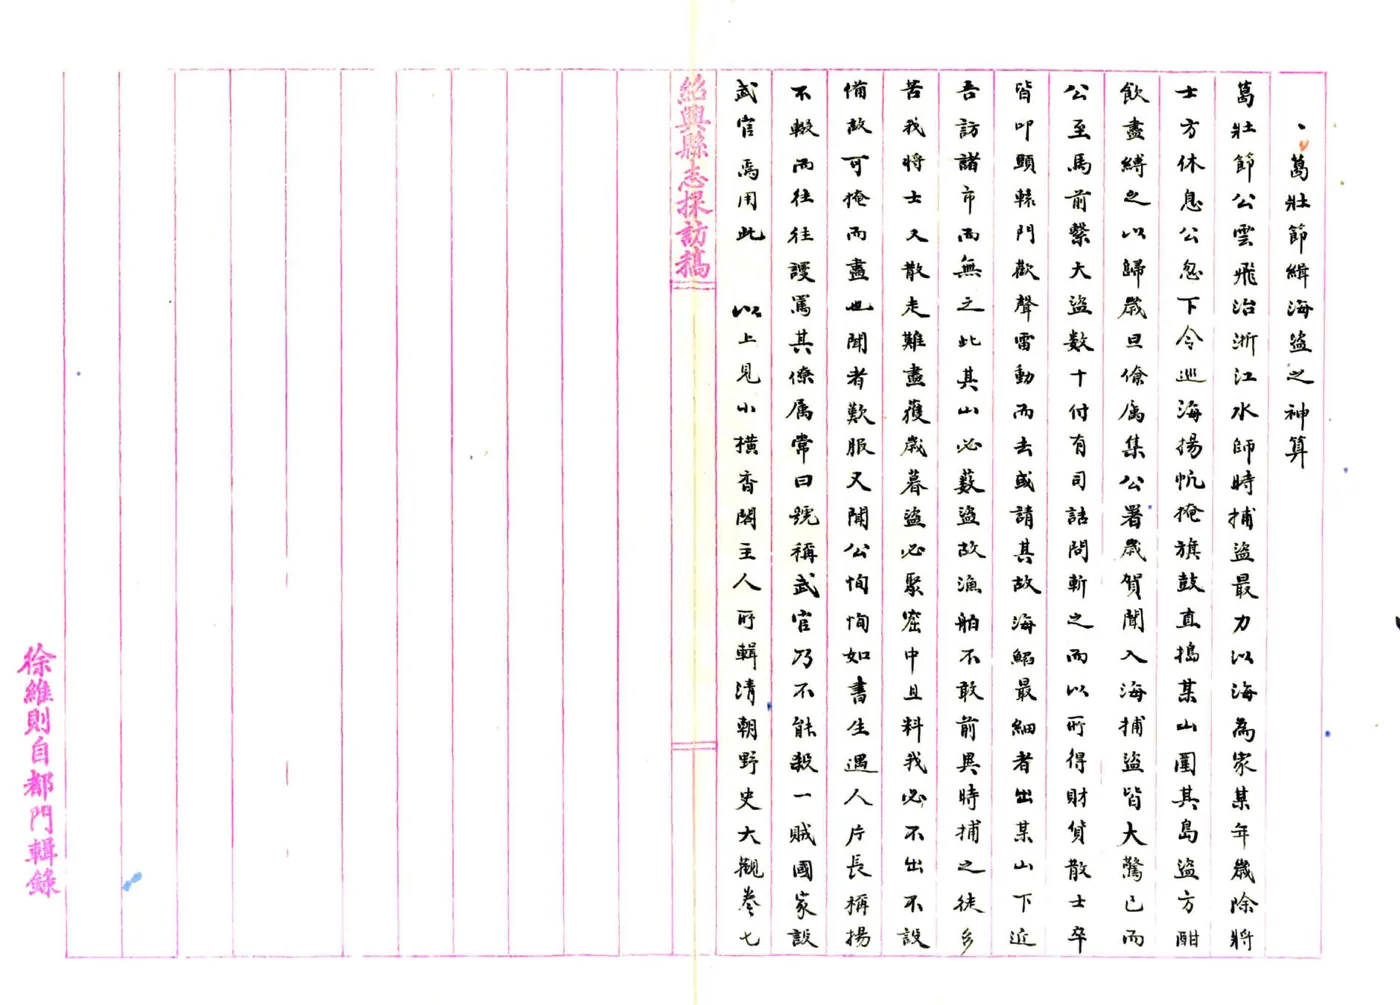 葛壯節緝海盜之神算
葛壯節公雲飛治浙江水師時捕盜最力以海為家某年歲除將
士方休息公忽下令巡海揚帆掩旗鼓直搗某山圍其島盜方酣
飲盡縛之以歸歲旦僚屬集公署歲賀聞入海捕盜皆大驚已而
公至馬前繫大盜數十付有司詰問斬之而以所得財貨散士卒
皆叩頭轅門歡聲雷動而去或請其故海鰡最細者出某山下近
吾訪諸市而無之此其山必藪盜故漁船不敢前異時捕之徒多
苦我將士又散走難盡獲歲暮盜必聚窟中且料我必不出不設
備故可掩而盡也聞者歎服又聞公恂恂如書生遇人片長稱揚
不輟而往往謾罵其僚屬常曰號稱武官乃不能殺一賊國家設
武官焉用此 以上見小橫香閣主人所輯清朝野史大觀卷七
紹興縣志採訪稿
徐維則自都門輯錄